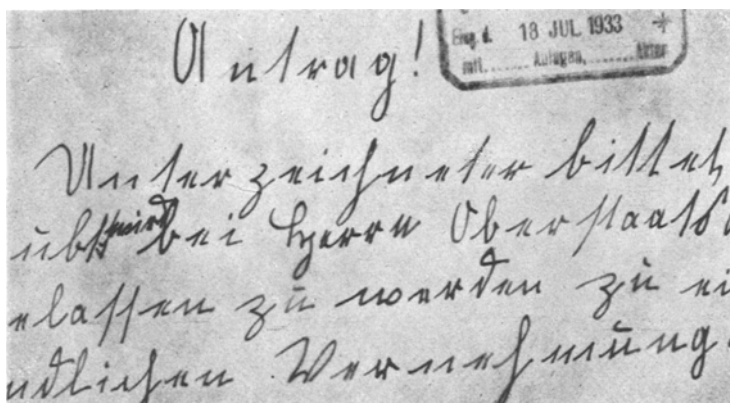 Eing. d. 18 JUL. 1933
mit ....... Anlagen, ....... Akten
Antrag!
Unterzeichneter bittet,
wird
bei Herrn Oberstaats
elassen zu werden zu ei
ndlichen Vernehmung.